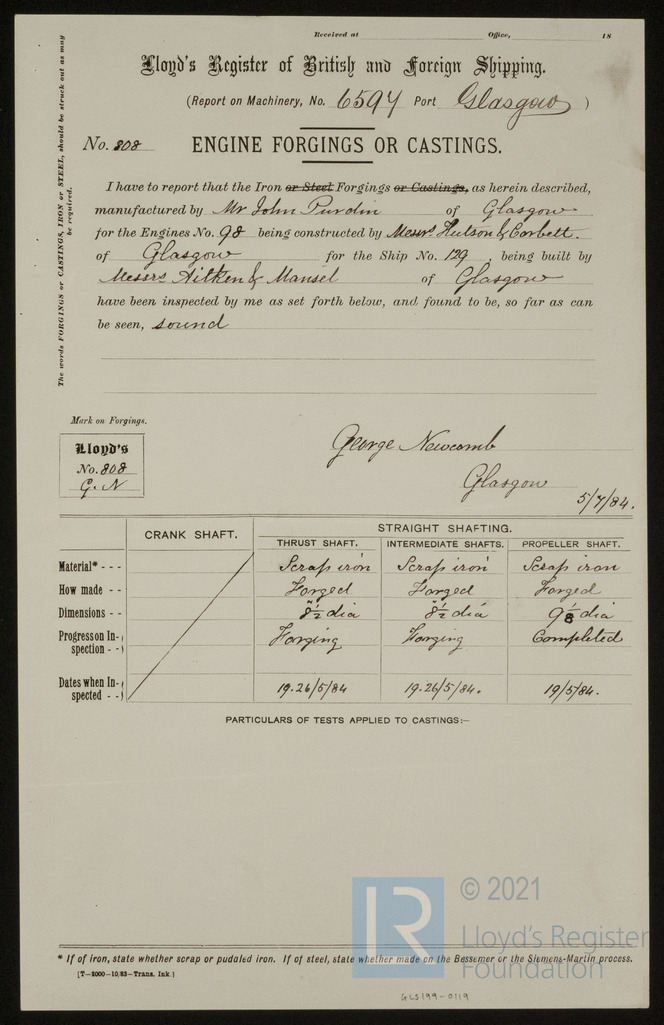 Received at Office, 18
Lloyd's Register of British and Foreign Shipping.
(Report on Machinery, No. 6597 Port Glasgow)
No. 808 ENGINE FORGINGS OR CASTINGS.
I have to report that the Iron or Steel Forgings or Castings, as herein described,
manufactured by Mr John Purdin of Glasgow
for the Engines No. 98 being constructed by Messrs Hutson & Corbett.
of Glasgow for the Ship No. 129 being built by
Messrs Aitken & Mansel of Glasgow
have been inspected by me as set forth below, and found to be, so far as can
be seen, sound
The words FORGINGS or CASTINGS, IRON or STEEL, should be struck out as may
be required.
Mark on Forgings.
Lloyd's
No. 808
G. N
George Newcomb
Glasgow
5/7/84.
CRANK SHAFT. STRAIGHT SHAFTING.
THRUST SHAFT. INTERMEDIATE SHAFTS. PROPELLER SHAFT.
Material* - - - Scrap iron Scrap iron Scrap iron
How made - - Forged Forged Forged
Dimensions - - 8½" dia 8½" dia 9⅛ dia
Progress on In- Forging Forging Completed
spection - -
Dates when In- 19.26/5/84 19.26/5/84. 19/5/84.
spected - -
PARTICULARS OF TESTS APPLIED TO CASTINGS:—
© 2021
Lloyd's Register
Foundation
* If of iron, state whether scrap or pudaled iron. If of steel, state whether made on the Bessemer or the Siemens-Martin process.
[T—2000—10/83—Trans. Ink.]
GLS199-0119